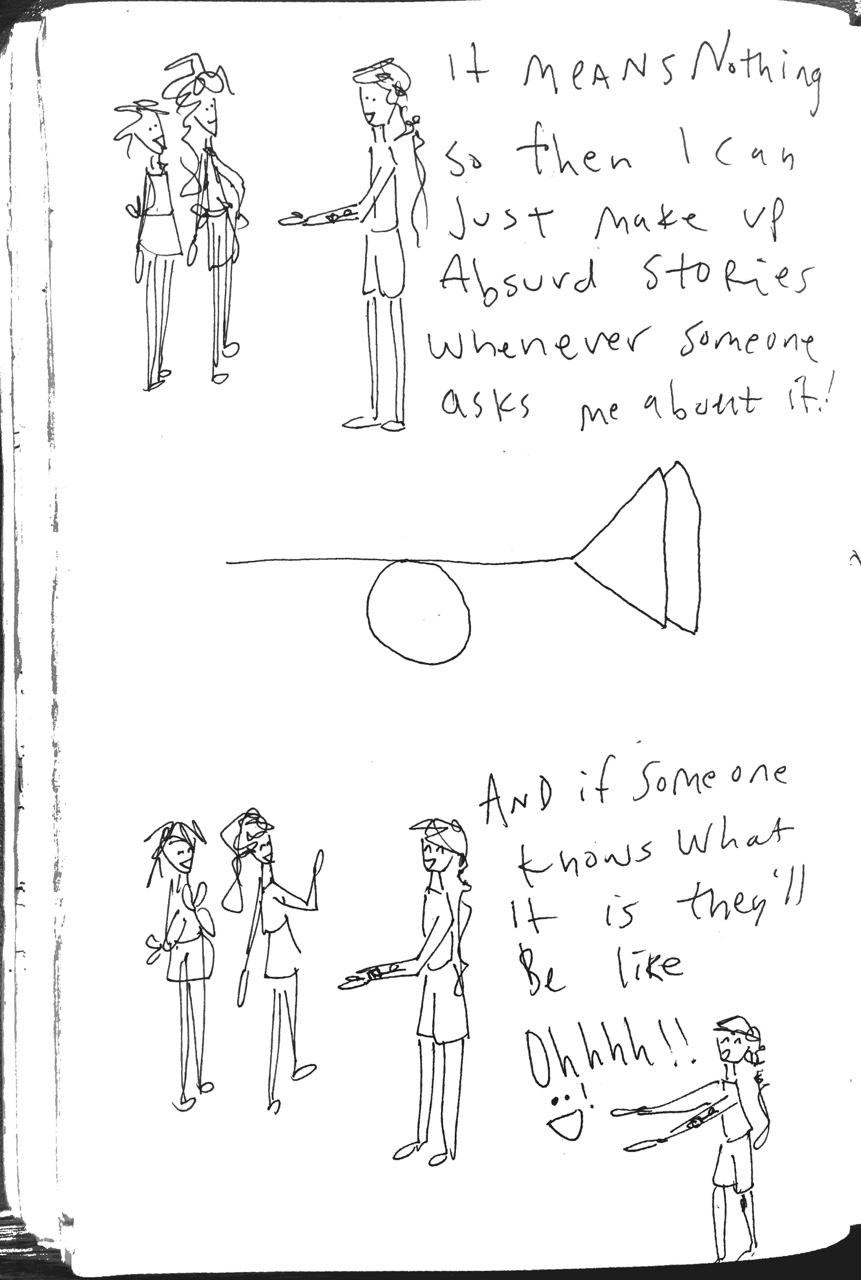 It MEANS Nothing
so then I can
Just make up
Absurd StoRies
whenever someone
asks me about it!
AND if someone
knows what
It is they'll
Be like
Ohhhh!!